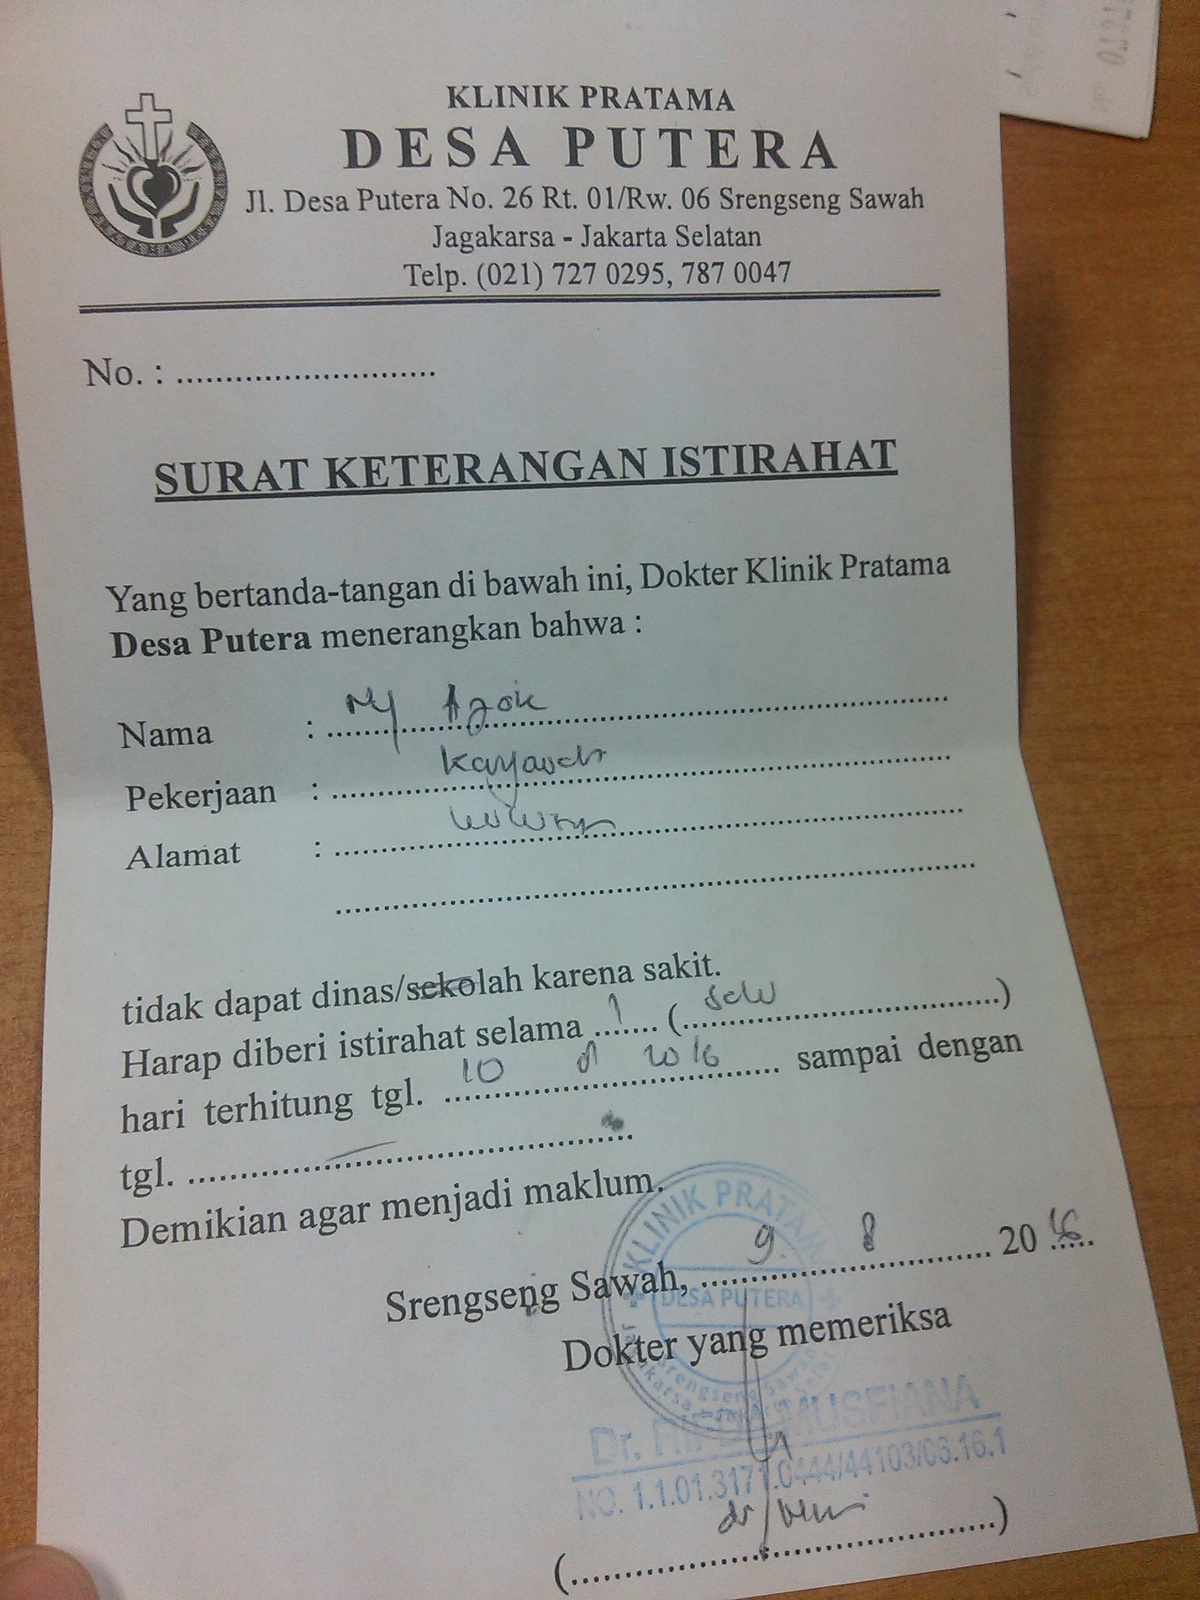 KLINIK PRATAMA
DESA PUTERA
Jl. Desa Putera No. 26 Rt. 01/Rw. 06 Srengseng Sawah
Jagakarsa - Jakarta Selatan
Telp. (021) 727 0295, 787 0047
No. : ...........................
SURAT KETERANGAN ISTIRAHAT
Yang bertanda-tangan di bawah ini, Dokter Klinik Pratama
Desa Putera menerangkan bahwa :
Nama : Ny
Pekerjaan :
Alamat :
tidak dapat dinas/sekolah karena sakit.
Harap diberi istirahat selama 1 (....)
hari terhitung tgl. 10 8 2016 sampai dengan
tgl. ..........
Demikian agar menjadi maklum.
Srengseng Sawah, 9 8 2016
KLINIK PRATAMA
DESA PUTERA
Dokter yang memeriksa
Dr. MUSFIANA
NO. 1.1.01.3171.0444/44103/06.16.1
(dr)